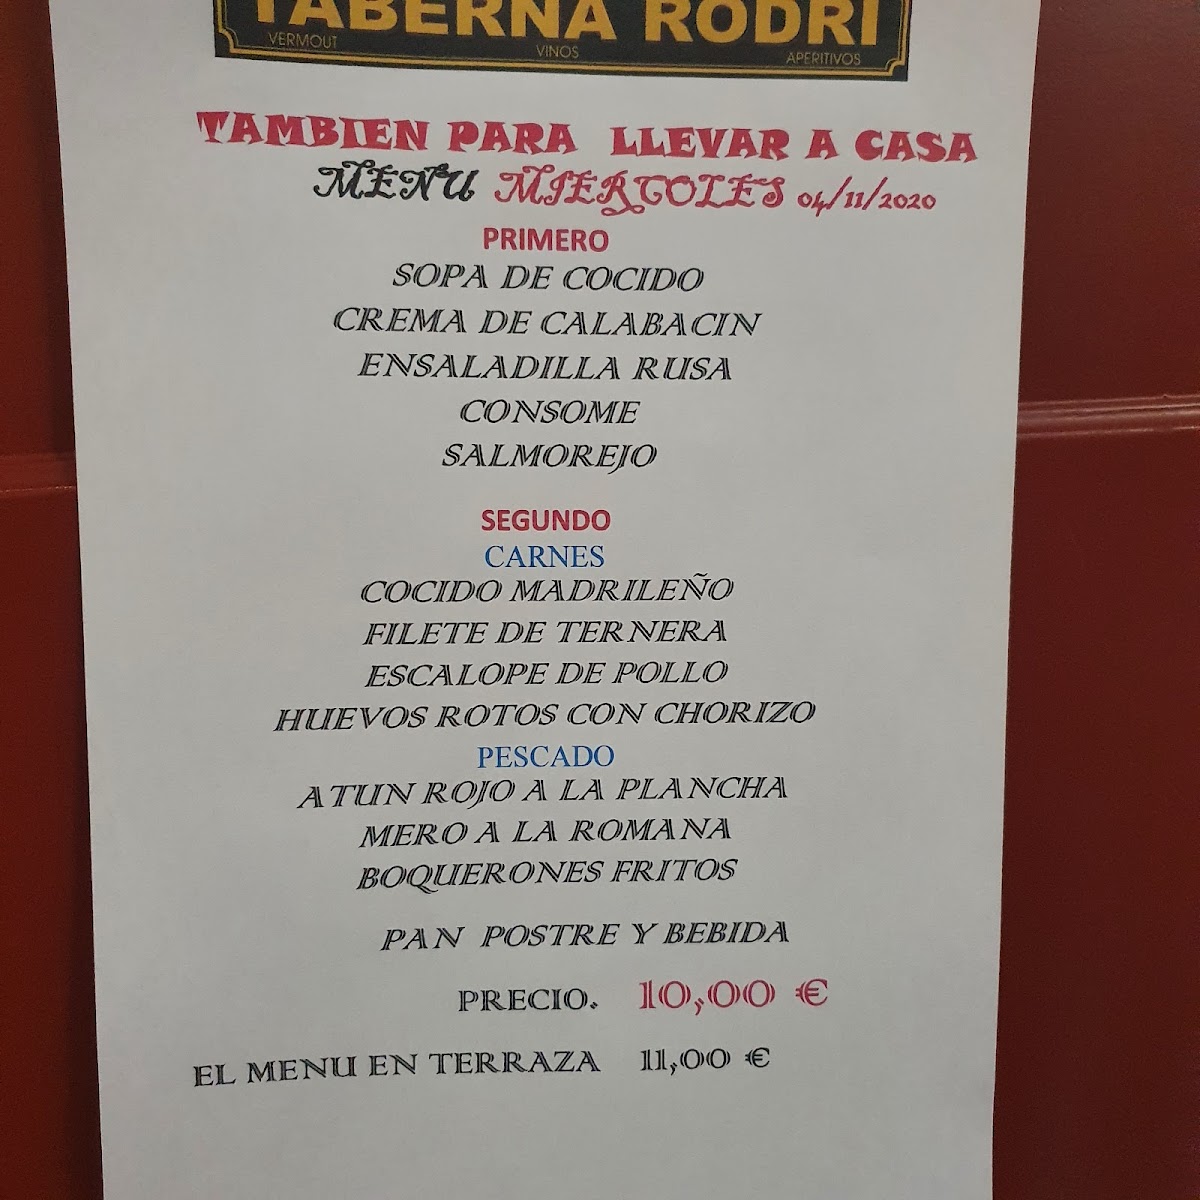 TABERNA RODRI
VERMOUT VINOS APERITIVOS
TAMBIEN PARA LLEVAR A CASA
MENU MIERCOLES 04/11/2020
PRIMERO
SOPA DE COCIDO
CREMA DE CALABACIN
ENSALADILLA RUSA
CONSOME
SALMOREJO
SEGUNDO
CARNES
COCIDO MADRILEÑO
FILETE DE TERNERA
ESCALOPE DE POLLO
HUEVOS ROTOS CON CHORIZO
PESCADO
ATUN ROJO A LA PLANCHA
MERO A LA ROMANA
BOQUERONES FRITOS
PAN POSTRE Y BEBIDA
PRECIO. 10,00 €
EL MENU EN TERRAZA 11,00 €